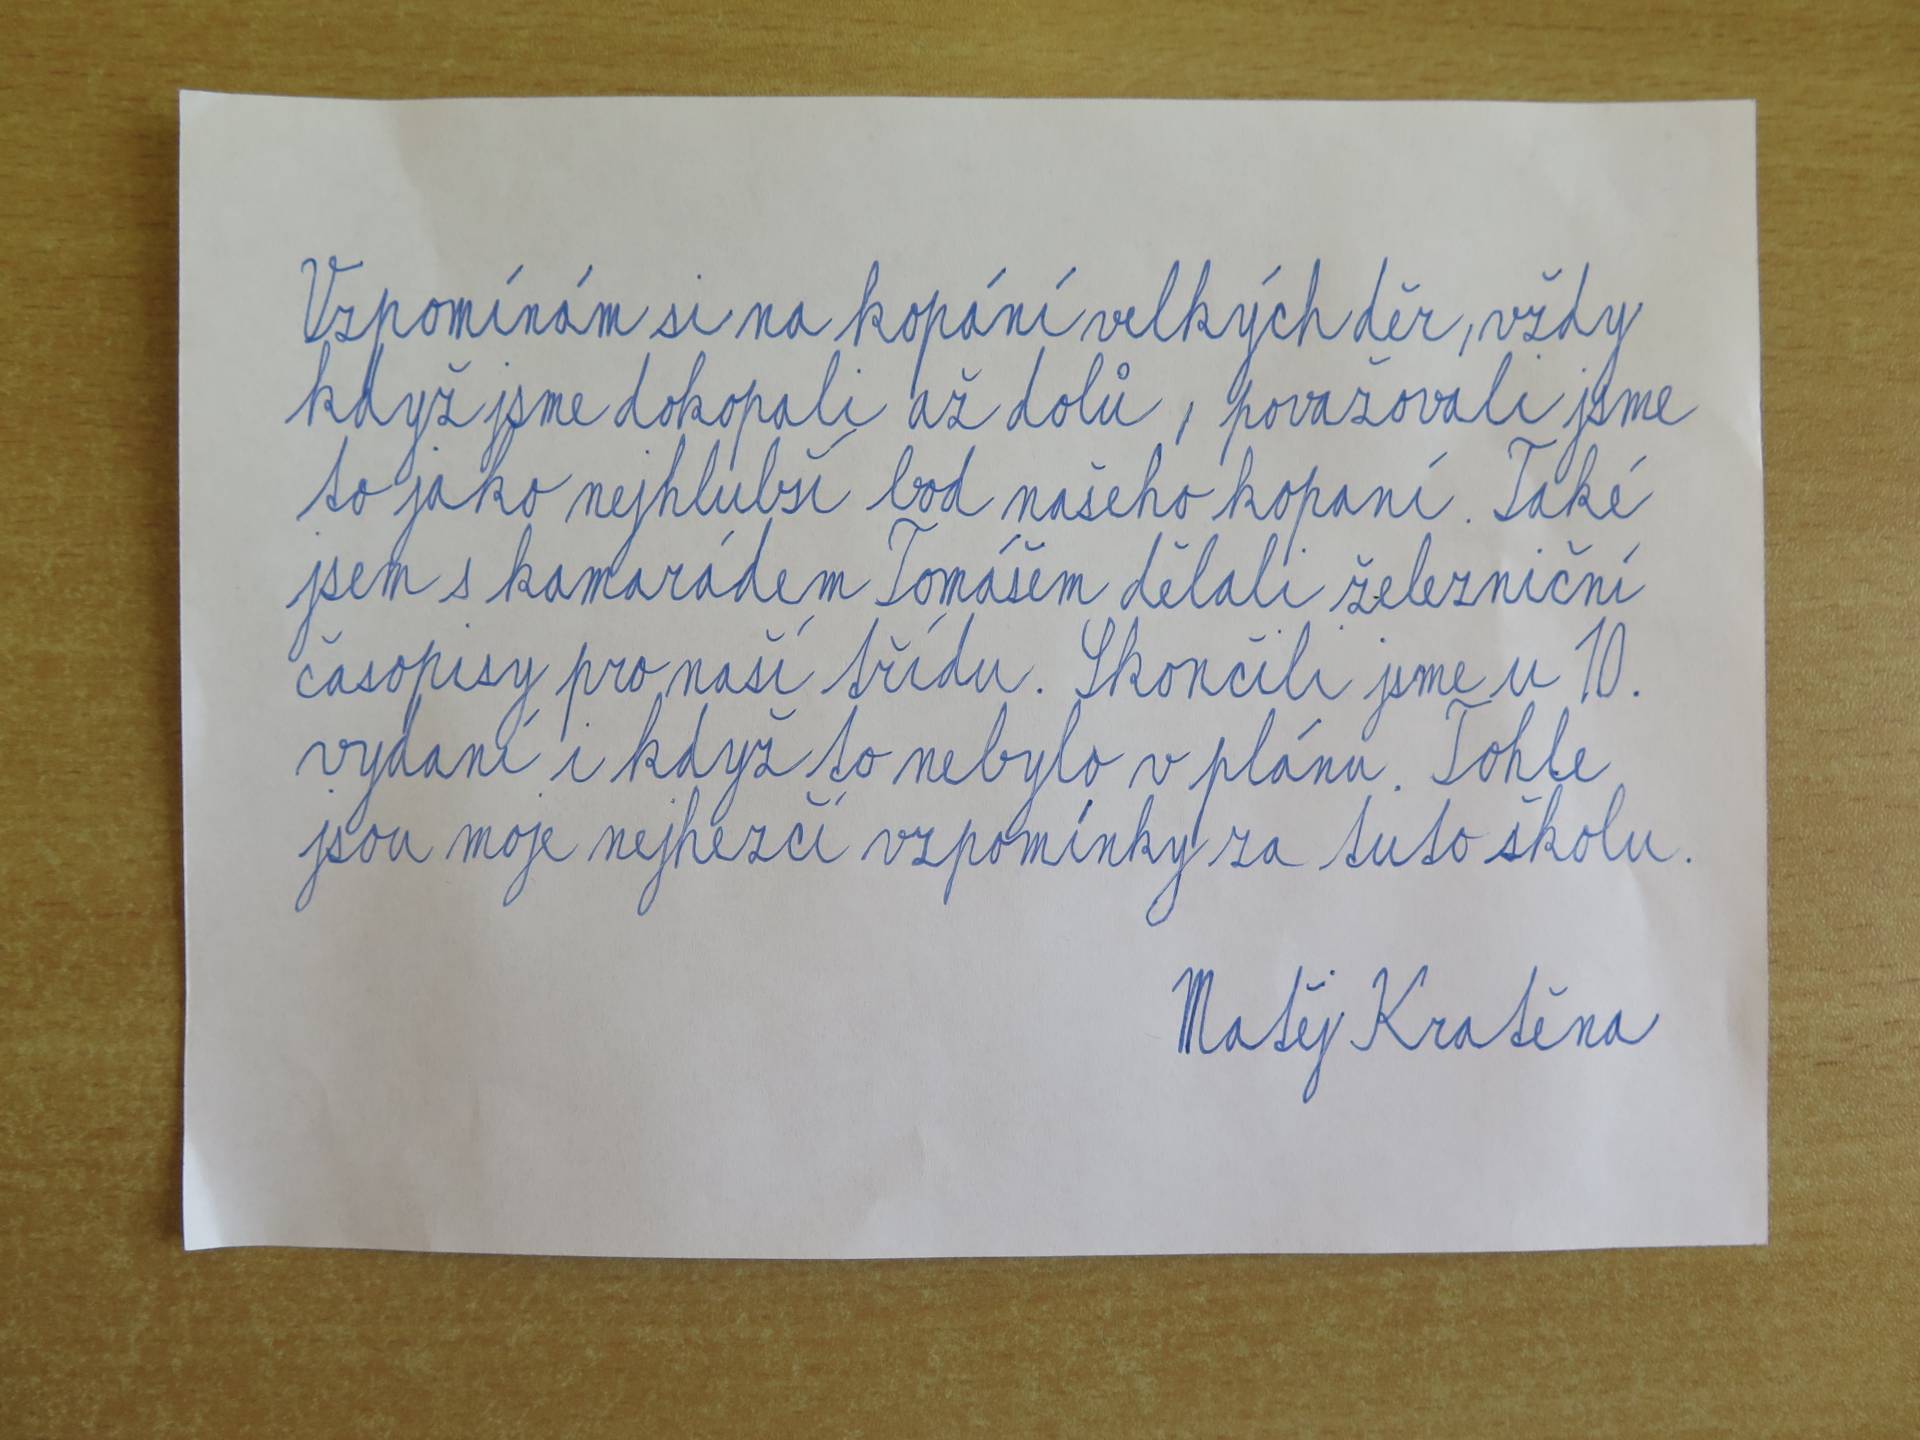 Vzpomínám si na kopání velkých děr, vždy
když jsme dokopali až dolů, považovali jsme
to jako nejhlubší bod našeho kopaní. Také
jsem s kamarádem Tomášem dělali železniční
časopisy pro naší třídu. Skončili jsme u 10.
vydaní i když to nebylo v plánu. Tohle
jsou moje nejhezčí vzpomínky za tuto školu.
Matěj Kratěna